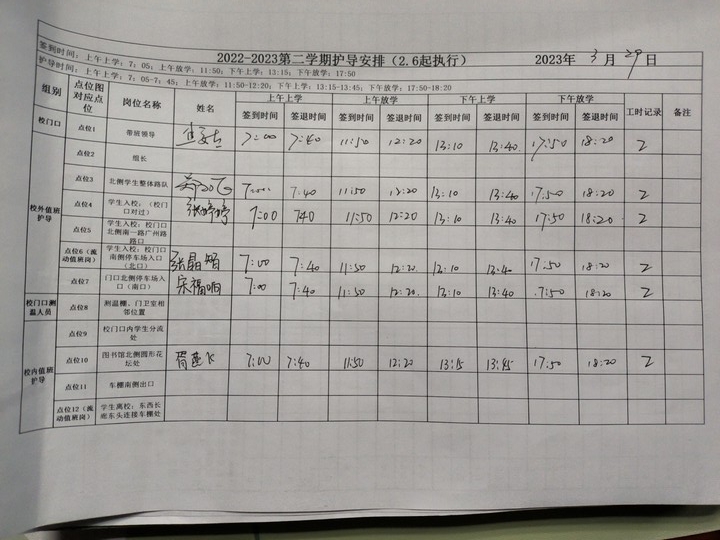 2022-2023第二学期护导安排（2.6起执行） 2023年 3 月 29 日
签到时间：上午上学：7：05；上午放学：11:50；下午上学：13:15；下午放学：17:50
护导时间：上午上学：7：05-7：45；上午放学：11:50-12:20；下午上学：13:15-13:45；下午放学：17:50-18:20
组别 点位图对应点位 岗位名称 姓名 上午上学 上午放学 下午上学 下午放学 工时记录 备注
签到时间 签退时间 签到时间 签退时间 签到时间 签退时间 签到时间 签退时间
校门口 点位1 带班领导 7:00 7:40 11:50 12:20 13:10 13:40 17:50 18:20 2
校外值班护导 点位2 组长
点位3 北侧学生整体路队 7:00 7:40 11:50 12:20 13:10 13:40 17:50 18:20 2
点位4 学生入校：（校门口对过） 张婷婷 7:00 740 11:50 12:20 13:10 13:40 17:50 18:20 2
点位5 学生入校：校门口北侧南一路广州路路口
点位6（流动值班岗） 学生入校：校门口南侧停车场入口（北口） 张晶智 7:00 7:40 11:50 12:20 13:10 13:40 17:50 18:20 2
点位7 门口北侧停车场入口（南口） 宋福响 7:00 7:40 11:50 12:20 13:10 13:40 17:50 18:20 2
校门口测温人员 点位8 测温棚、门卫室相邻位置
校内值班护导 点位9 校门口内学生分流处
点位10 图书馆北侧圆形花坛处 7:00 7:40 11:50 12:20 13:15 13:45 17:50 18:20 2
点位11 车棚南侧出口
点位12（流动值班岗） 学生离校：东西长廊东头连接车棚处